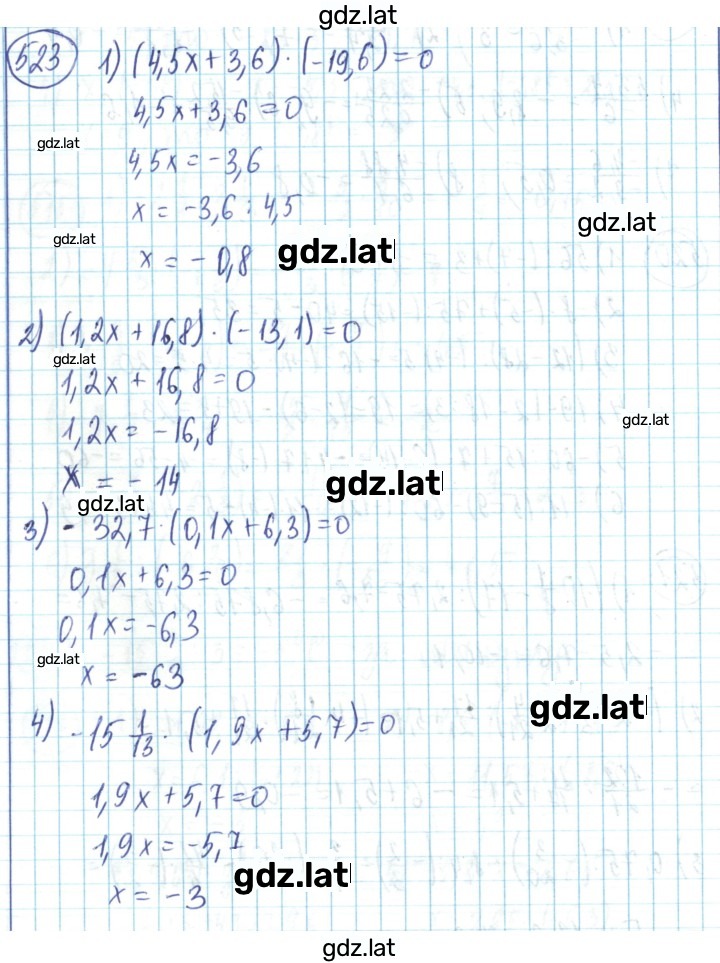 gdz.lat
523 1) (4,5x + 3,6) · (-19,6) = 0
4,5x + 3,6 = 0
gdz.lat
4,5x = -3,6
x = -3,6 : 4,5
gdz.lat
gdz.lat
x = - 0,8
gdz.lat
2) (1,2x + 16,8) · (-13,1) = 0
gdz.lat
1,2x + 16,8 = 0
gdz.lat
1,2x = -16,8
x = - 14
gdz.lat
gdz.lat
3) - 32,7 · (0,1x + 6,3) = 0
0,1x + 6,3 = 0
0,1x = -6,3
gdz.lat
x = -63
gdz.lat
4) -15 1/13 · (1,9x + 5,7) = 0
1,9x + 5,7 = 0
1,9x = -5,7
gdz.lat
x = -3
gdz.lat